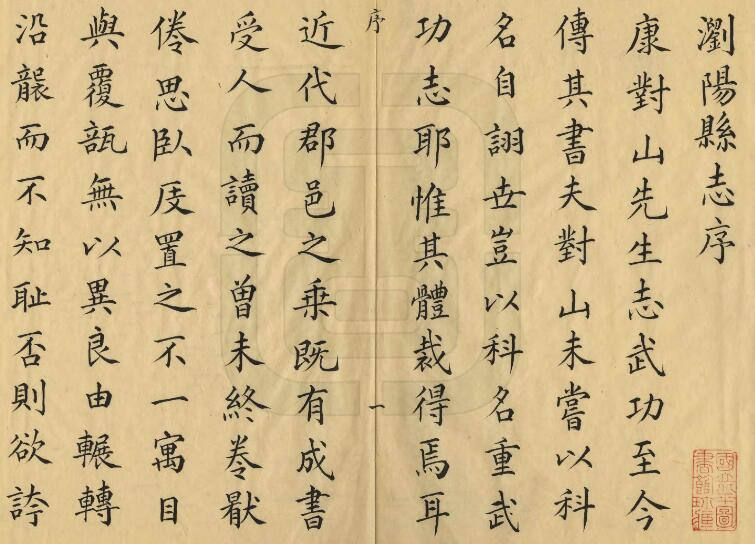 瀏陽縣志序
康對山先生志武功至今
傳其書夫對山未嘗以科
名自詡世豈以科名重武
功志耶惟其體裁得焉耳
序
一
近代郡邑之乘既有成書
受人而讀之曾未終卷厭
倦思臥屏置之不一寓目
與覆瓿無以異良由輾轉
沿襲而不知恥否則欲誇